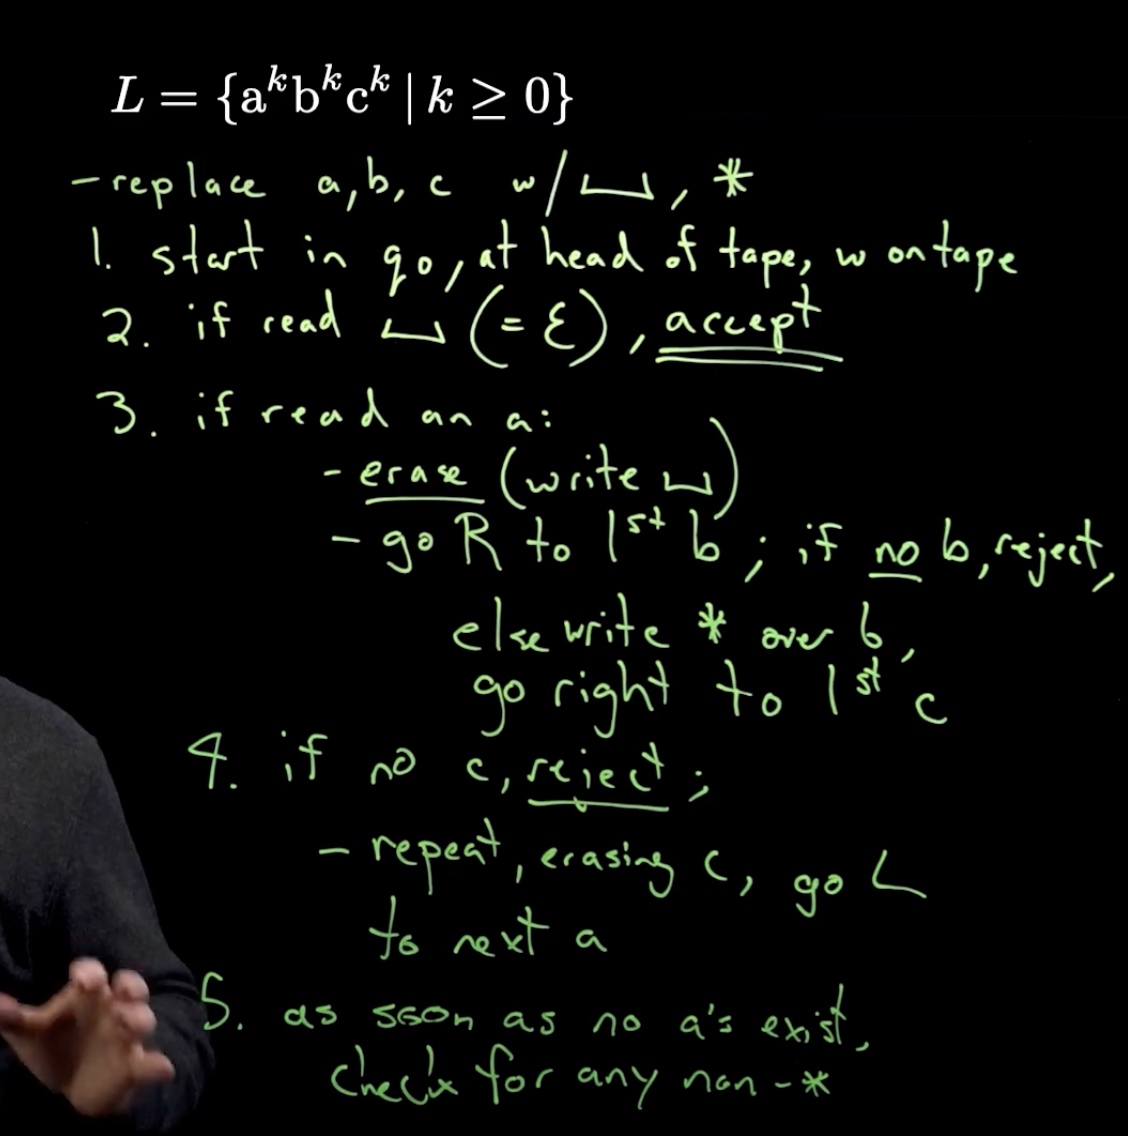 L = {aᵏbᵏcᵏ | k ≥ 0}
- replace a, b, c w/ ⊔, *
1. start in q0, at head of tape, w on tape
2. if read ⊔ (= ε), accept
3. if read an a:
- erase (write ⊔)
- go R to 1st b ; if no b, reject,
else write * over b,
go right to 1st c
4. if no c, reject ;
- repeat, erasing c, go L
to next a
5. as soon as no a's exist,
check for any non-*